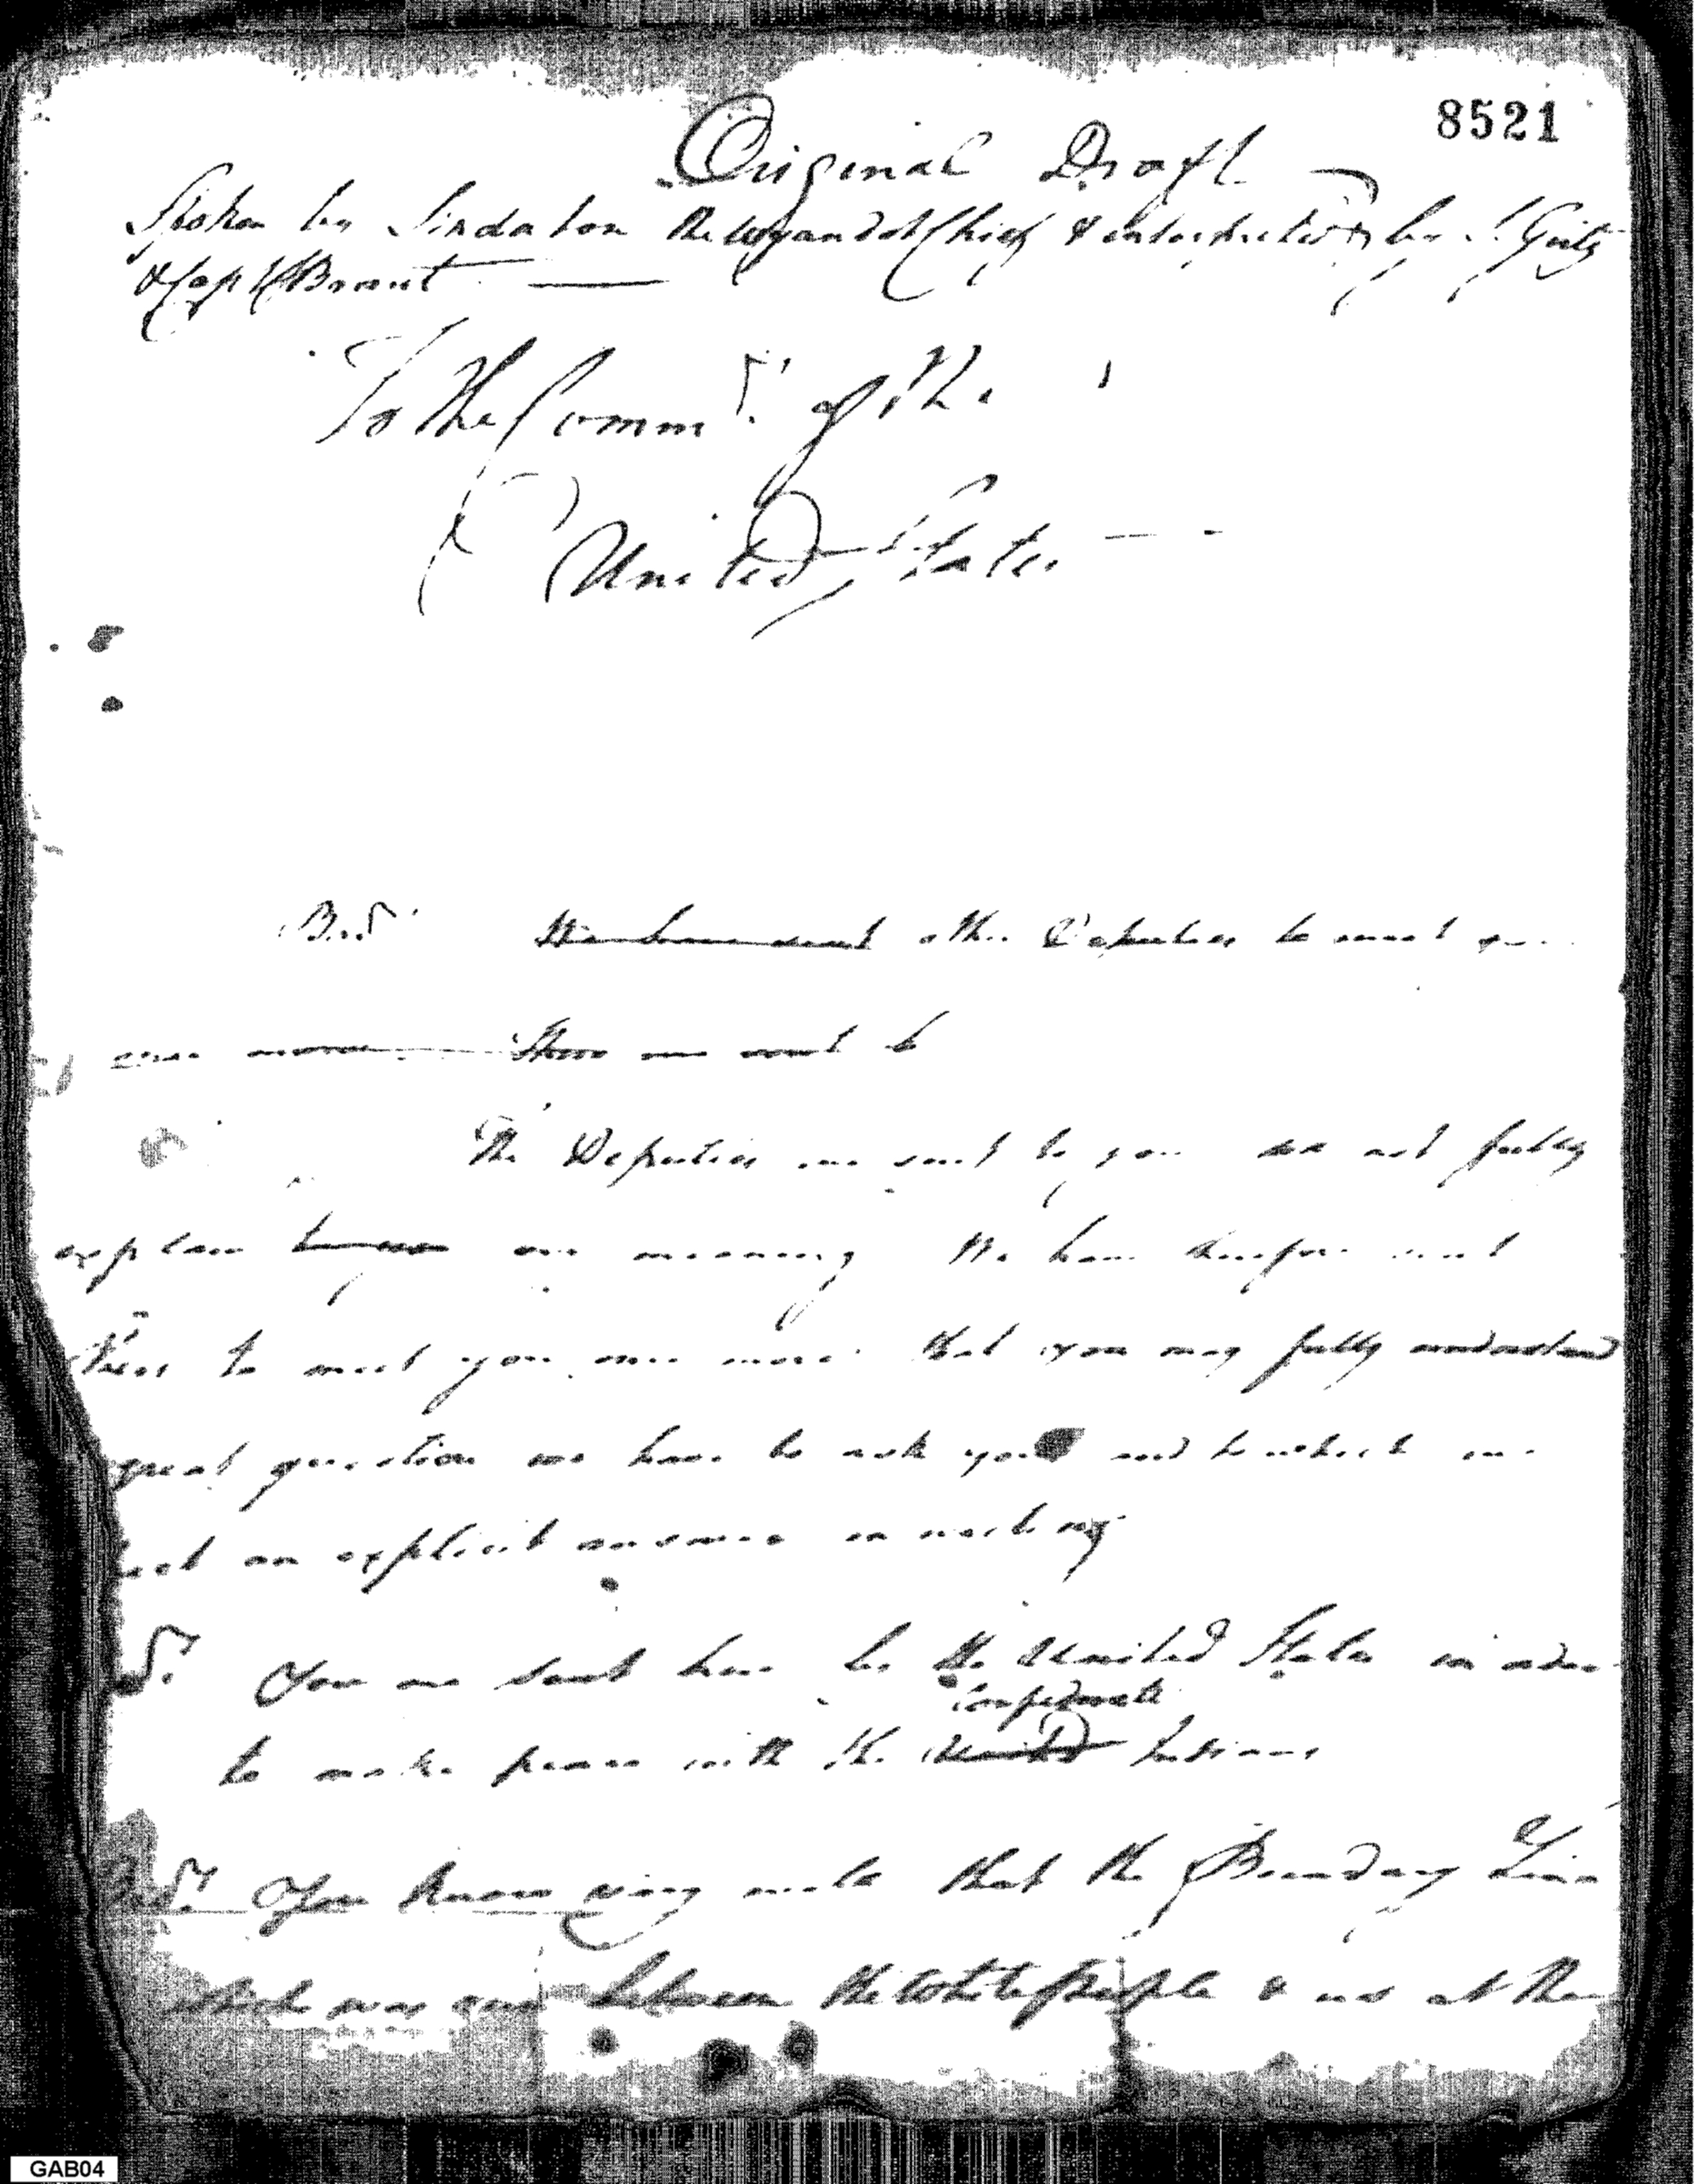 8521
Original Draft
Spoken by Sindaton the Wyandot Chief & interpreted by S. Girty
& Capt Brant
To the Commrs. of the
United States
Brs. We have sent other Deputies to meet you
once more
The Deputies we sent to you did not fully
explain our meaning We have therefore sent
to meet you once more that you may fully understand
great question we have to ask you and to which we
an explicit answer in writing
You are sent here by the United States in order
confederate
to make peace with the United Indians
Brs. You know very well that the Boundary Line
which was run between the White people & us at the
GAB04